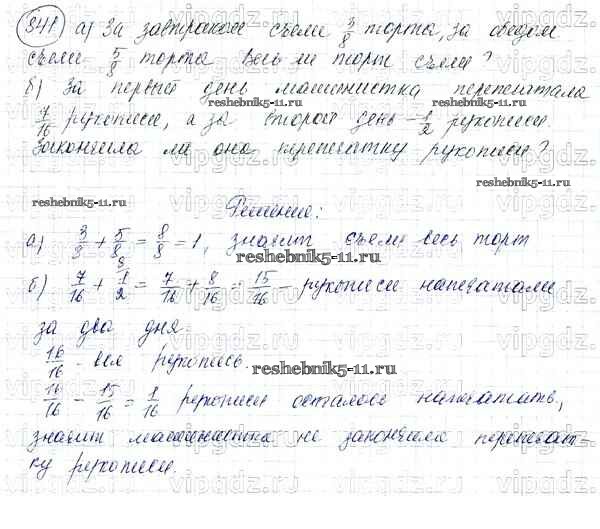 841 а) За завтраком съели 3/8 торта, за обедом
съели 5/8 торта Весь ли торт съели?
б) За первый день машинистка перепечатала
reshebnik5-11.ru
7/16 рукописи, а за второй день - 1/2 рукописи.
Закончила ли она перепечатку рукописи?
reshebnik5-11.ru
Решение:
а) 3/8 + 5/8 = 8/8 = 1, значит съели весь торт
reshebnik5-11.ru
б) 7/16 + 1/2 = 7/16 + 8/16 = 15/16 - рукописи напечатали
за два дня.
16/16 - вся рукопись.
reshebnik5-11.ru
16/16 - 15/16 = 1/16 рукописи осталось напечатать,
значит машинистка не закончила перепечат-
ку рукописи.
vipgdz.ru